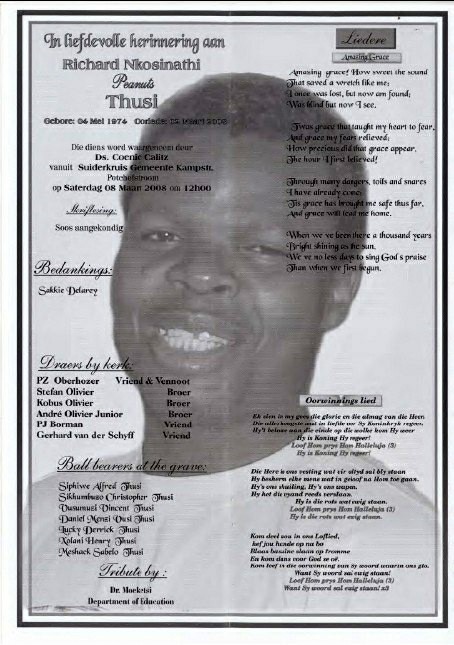 In liefdevolle herinnering aan
Richard Nkosinathi
Peanuts
Thusi
Gebore: 04 Mei 1974 Oorlede: 02 Maart 2008
Die diens word waargeneem deur
Ds. Coenie Calitz
vanuit Suiderkruis Gemeente Kampstr.
Potchefstroom
op Saterdag 08 Maar 2008 om 12h00
Skriflesing:
Soos aangekondig
Bedankings:
Sakkie Delarey
Draers by kerk:
PZ Oberhozer Vriend & Vennoot
Stefan Olivier Broer
Kobus Olivier Broer
André Olivier Junior Broer
PJ Borman Vriend
Gerhard van der Schyff Vriend
Ball bearers at the grave:
Siphiwe Alfred Thusi
Sikhumbuzo Christopher Thusi
Vusumuzi Vincent Thusi
Daniel Menzi Vusi Thusi
Lucky Derrick Thusi
Xolani Henry Thusi
Meshack Sabelo Thusi
Tribute by :
Dr. Moeketsi
Department of Education
Liedere
Amasing Grace
Amasing grace! How sweet the sound
That saved a wretch like me;
I once was lost, but now am found;
Was blind but now I see.
'Twas grace that taught my heart to fear,
And grace my fears relieved;
How precious did that grace appear,
The hour I first believed!
Through many dangers, toils and snares
I have already come;
'Tis grace has brought me safe thus far,
And grace will lead me home.
When we've been there a thousand years
Bright shining as the sun,
We've no less days to sing God's praise
Than when we first begun.
Oorwinnings lied
Ek sien in my gees die glorie en die almag van die Heer.
Die allerhoogste wat in liefde oor Sy Koninkryk regeer.
Hy't belowe aan die einde op die wolke kom Hy weer
Hy is Koning Hy regeer!
Loof Hom prys Hom Halleluja (3)
Hy is Koning Hy regeer!
Die Here is ons vesting wat vir altyd sal bly staan
Hy beskerm elke mens wat in geloof na Hom toe gaan.
Hy's ons skuiling, Hy's ons wapen,
Hy het die vyand reeds verslaan.
Hy is die rots wat ewig staan.
Loof Hom prys Hom Halleluja (3)
Hy is die rots wat ewig staan.
Kom deel sou in ons Loflied,
hef jou hande op na bo
Blaas basuine slaan op tromme
En kom dans voor God se oë
Kom leef in die oorwinning van Sy woord waarin ons glo.
Want Sy woord sal ewig staan!
Loof Hom prys Hom Halleluja (3)
Want Sy woord sal ewig staan! x3